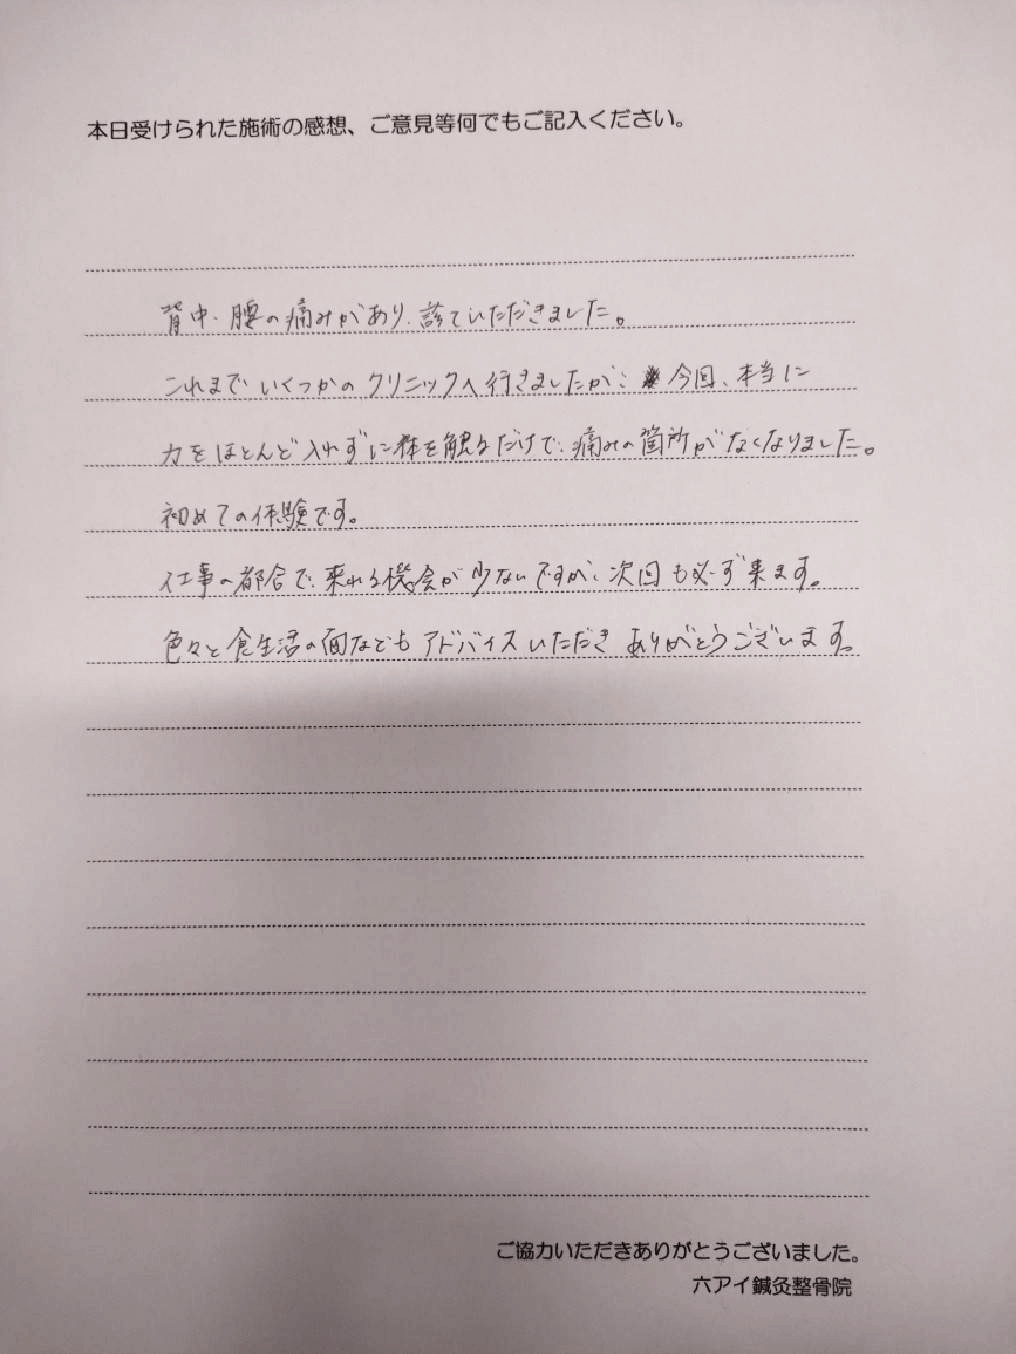 本日受けられた施術の感想、ご意見等何でもご記入ください。
背中、腰の痛みがあり、診ていただきました。
これまでいくつかのクリニックへ行きましたが、今回、本当に
力をほとんど入れずに体を触るだけで、痛みの箇所がなくなりました。
初めての体験です。
仕事の都合で、来れる機会が少ないですが、次回も必ず来ます。
色々と食生活の面などもアドバイスいただきありがとうございます。
ご協力いただきありがとうございました。
六アイ鍼灸整骨院